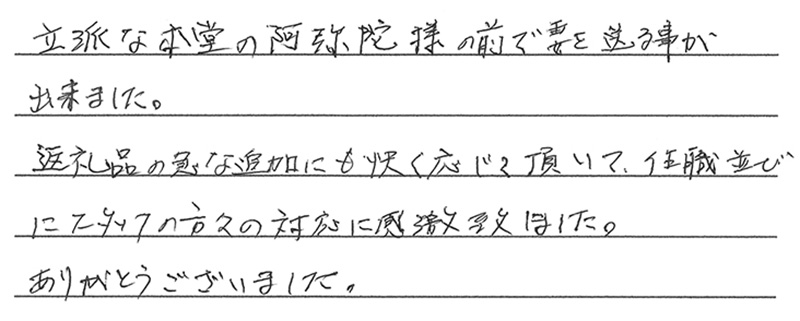 立派な本堂の阿弥陀様の前で妻を送る事が
出来ました。
返礼品の急な追加にも快く応じて頂いて、住職並び
にスタッフの方々の対応に感激致しました。
ありがとうございました。